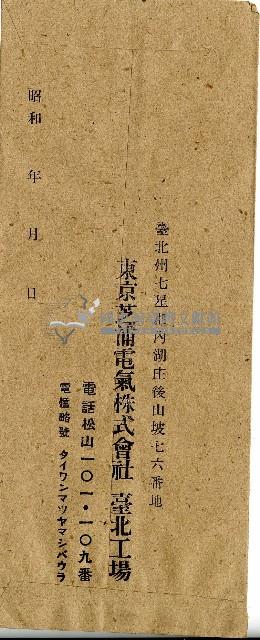 臺北州七星郡內湖庄後山坡七六番地
東京芝浦電氣株式會社 臺北工場
電話松山一〇一・一〇九番
電信略號 タイワンマツヤマシバウラ
昭和　年　月　日